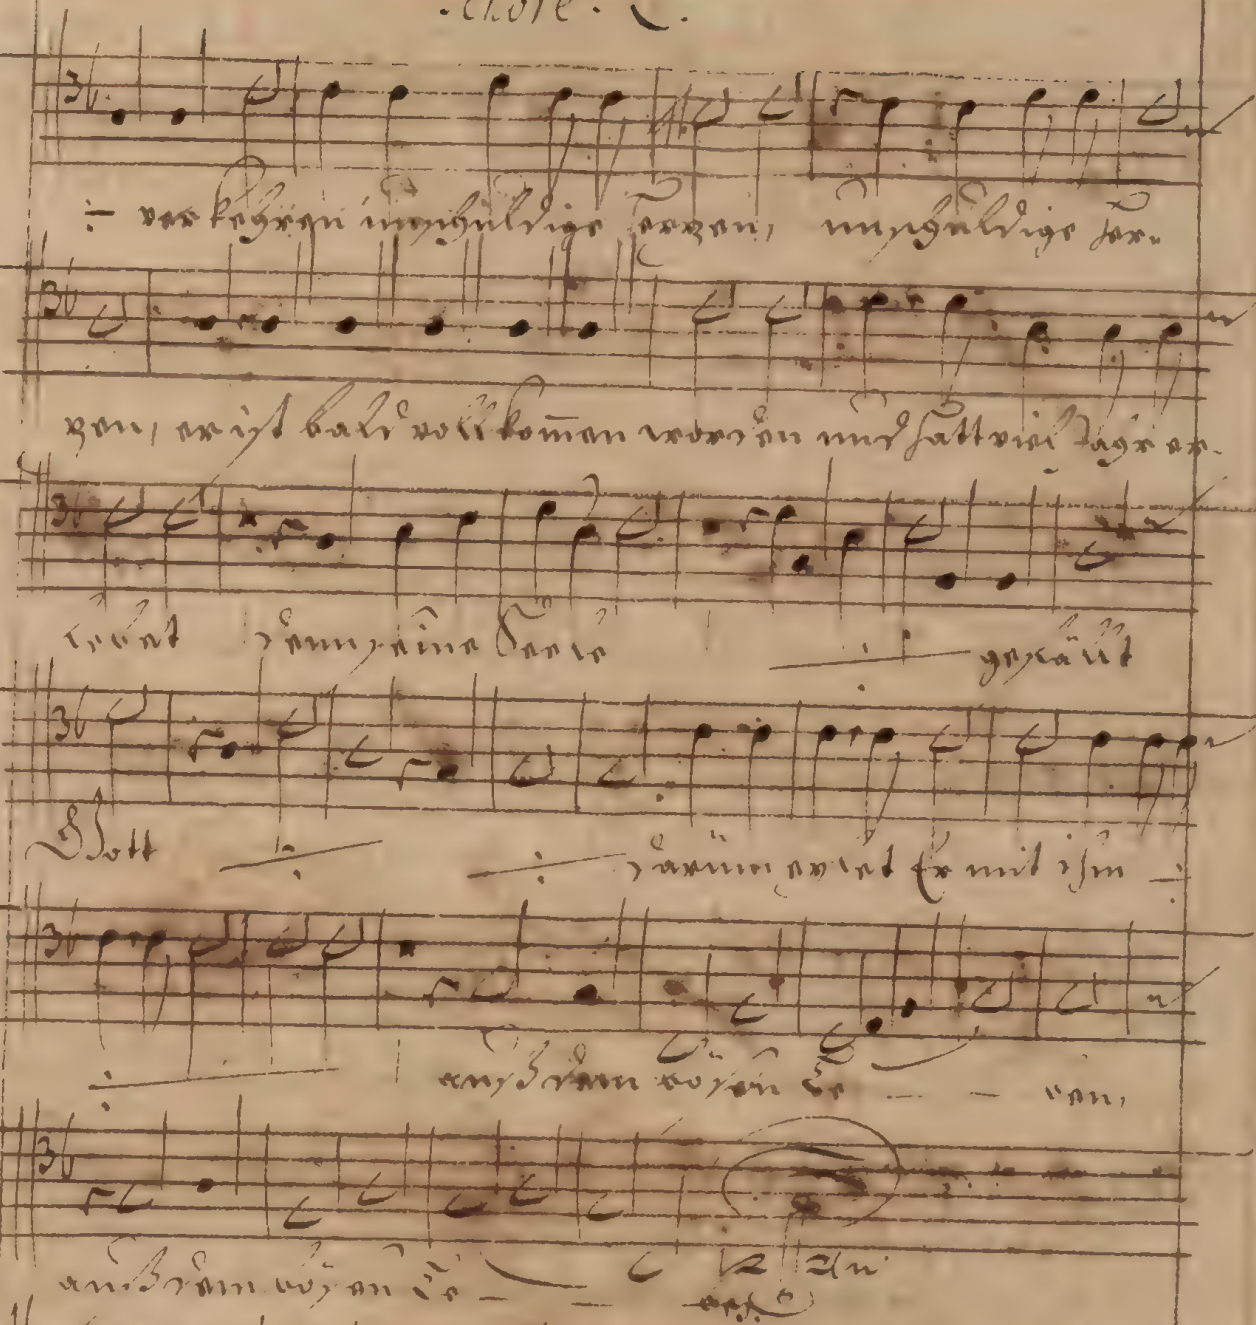 ·/· verkehren unschuldige Herzen, unschuldige Her-
zen, er ist bald vollkom̄en worden und hatt viel Jahr er-
lebet denn seine Seele ·/· gefällt
Gott ·/· ·/· darum eylet Er mit ihm ·/·
·/· auß dem bösen Le - - ben,
auß dem bösen Le - -